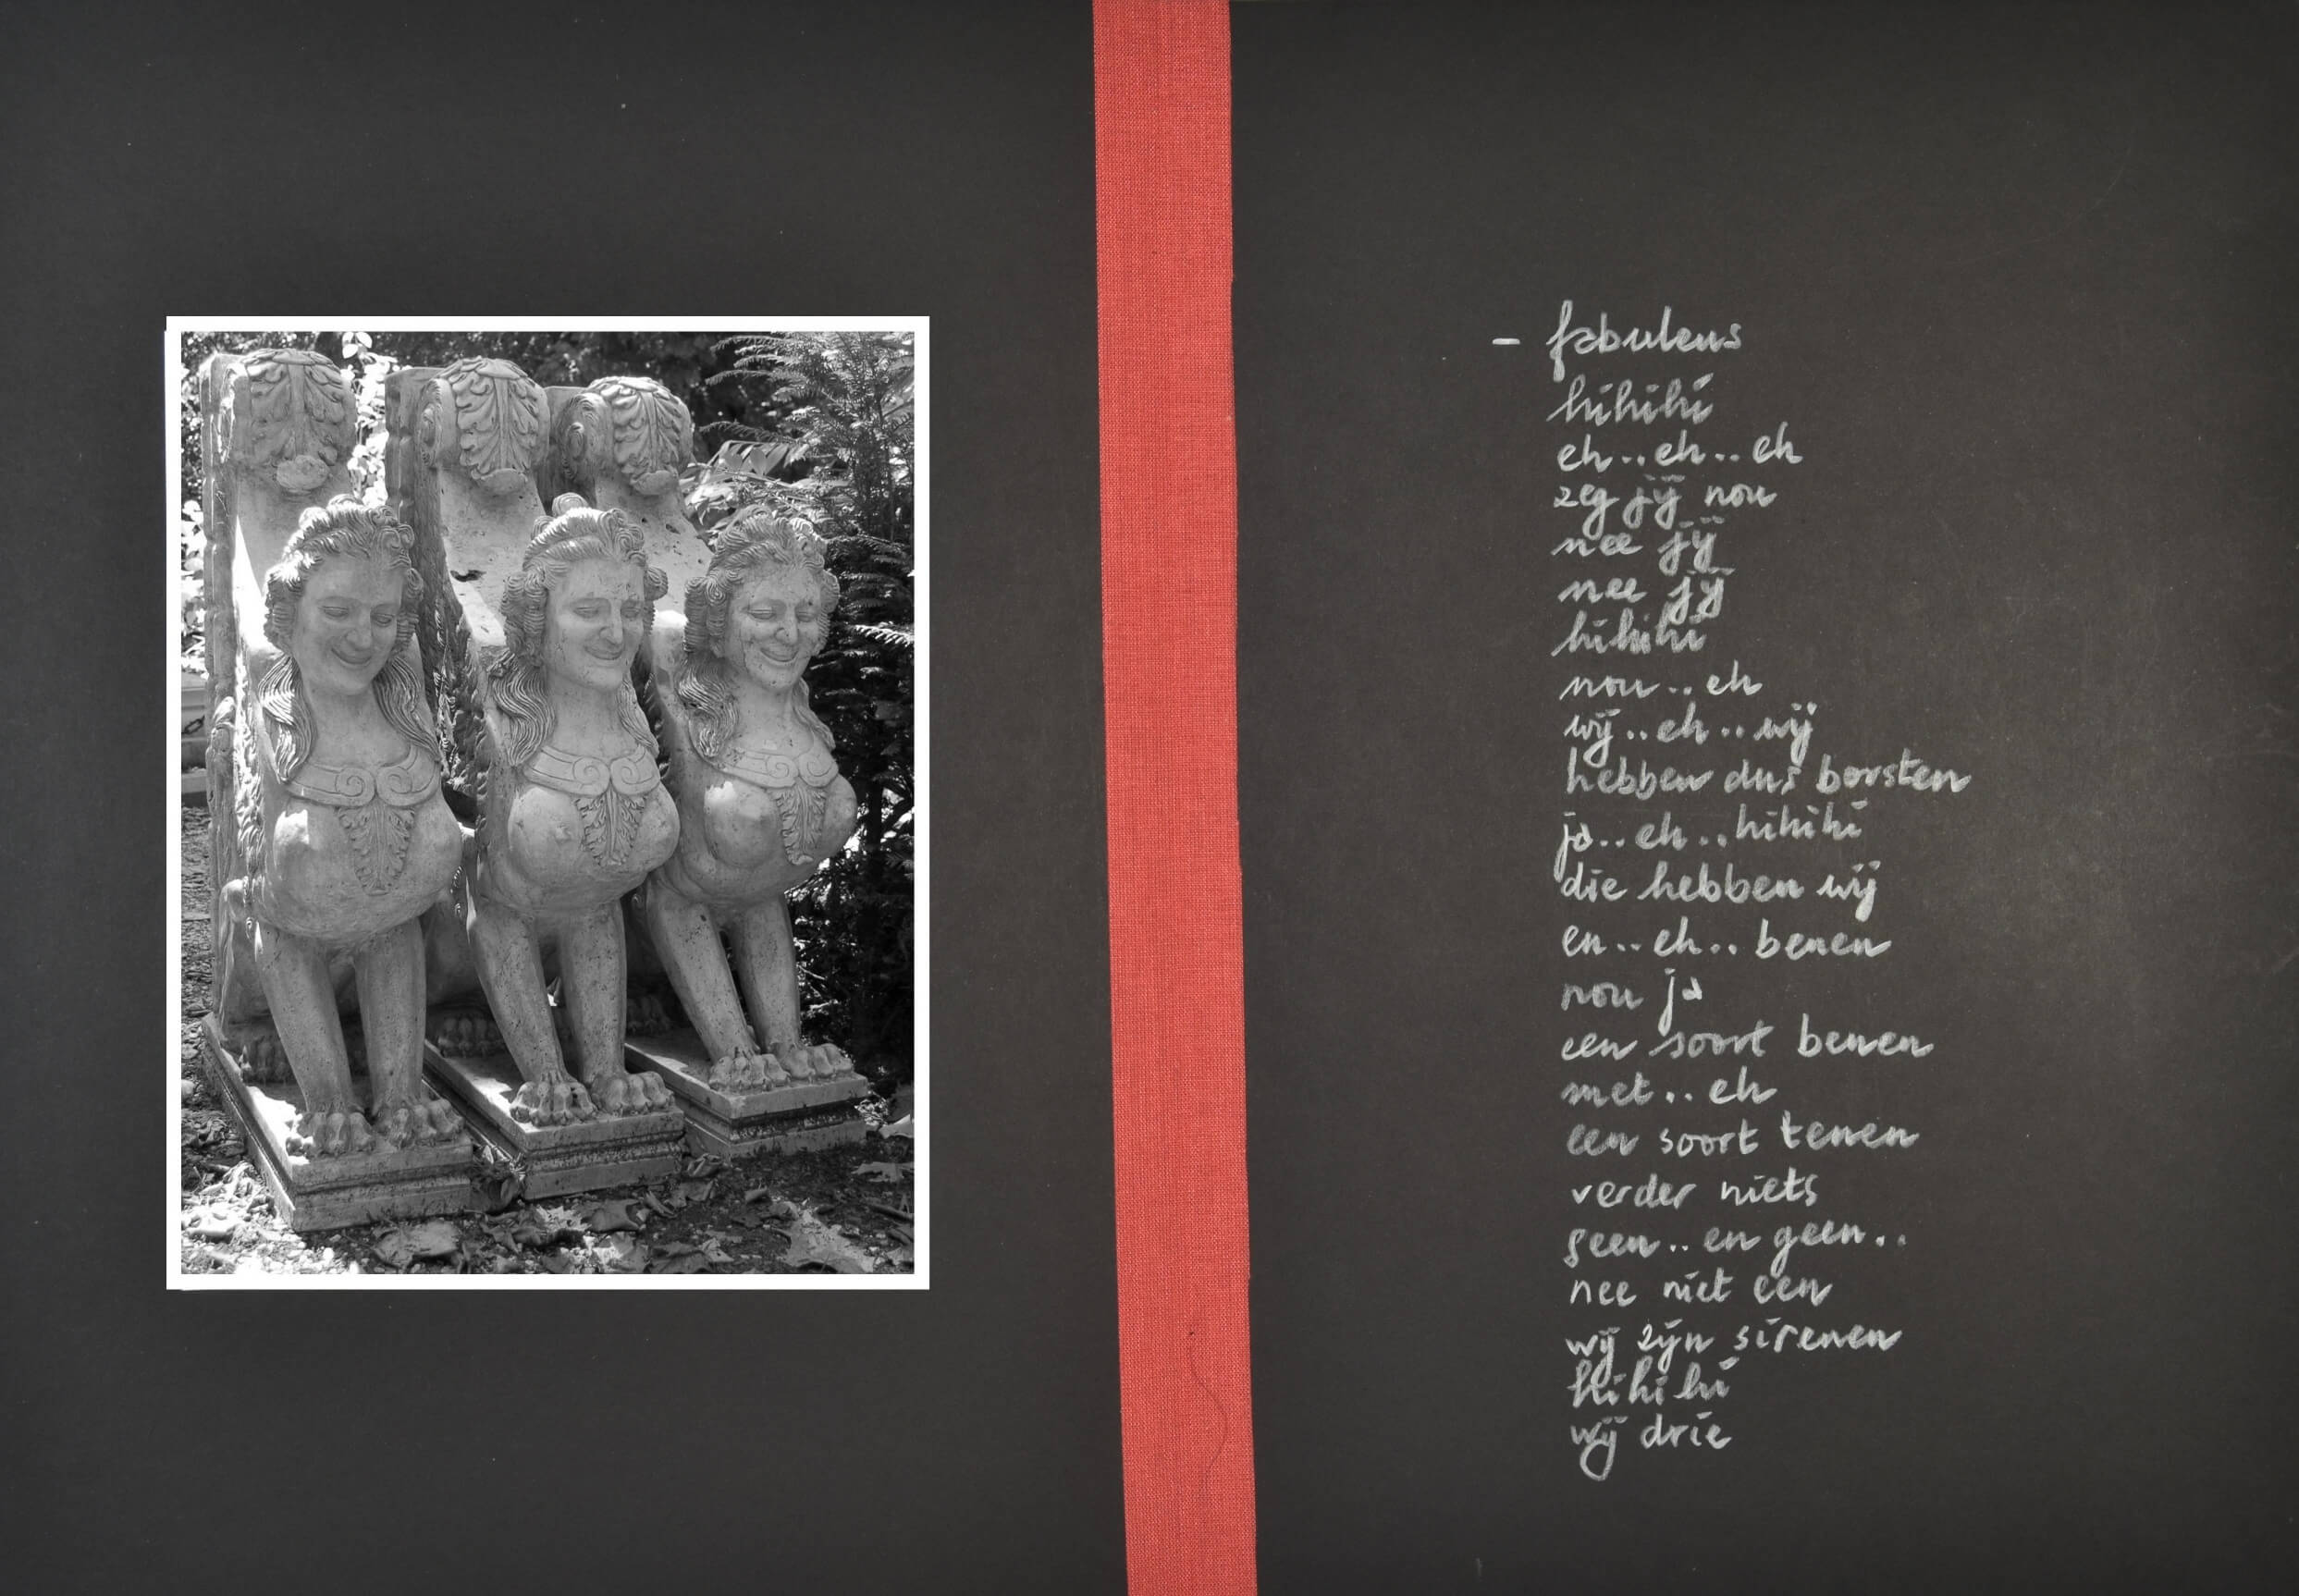 – fabuleus
hihihi
eh..eh..eh
zeg jij nou
nee jij
nee jij
hihihi
nou..eh
wij..eh..wij
hebben dus borsten
ja..eh..hihihi
die hebben wij
en..eh..benen
nou ja
een soort benen
met..eh
een soort tenen
verder niets
geen..en geen..
nee niet een
wij zijn sirenen
hihihi
wij drie